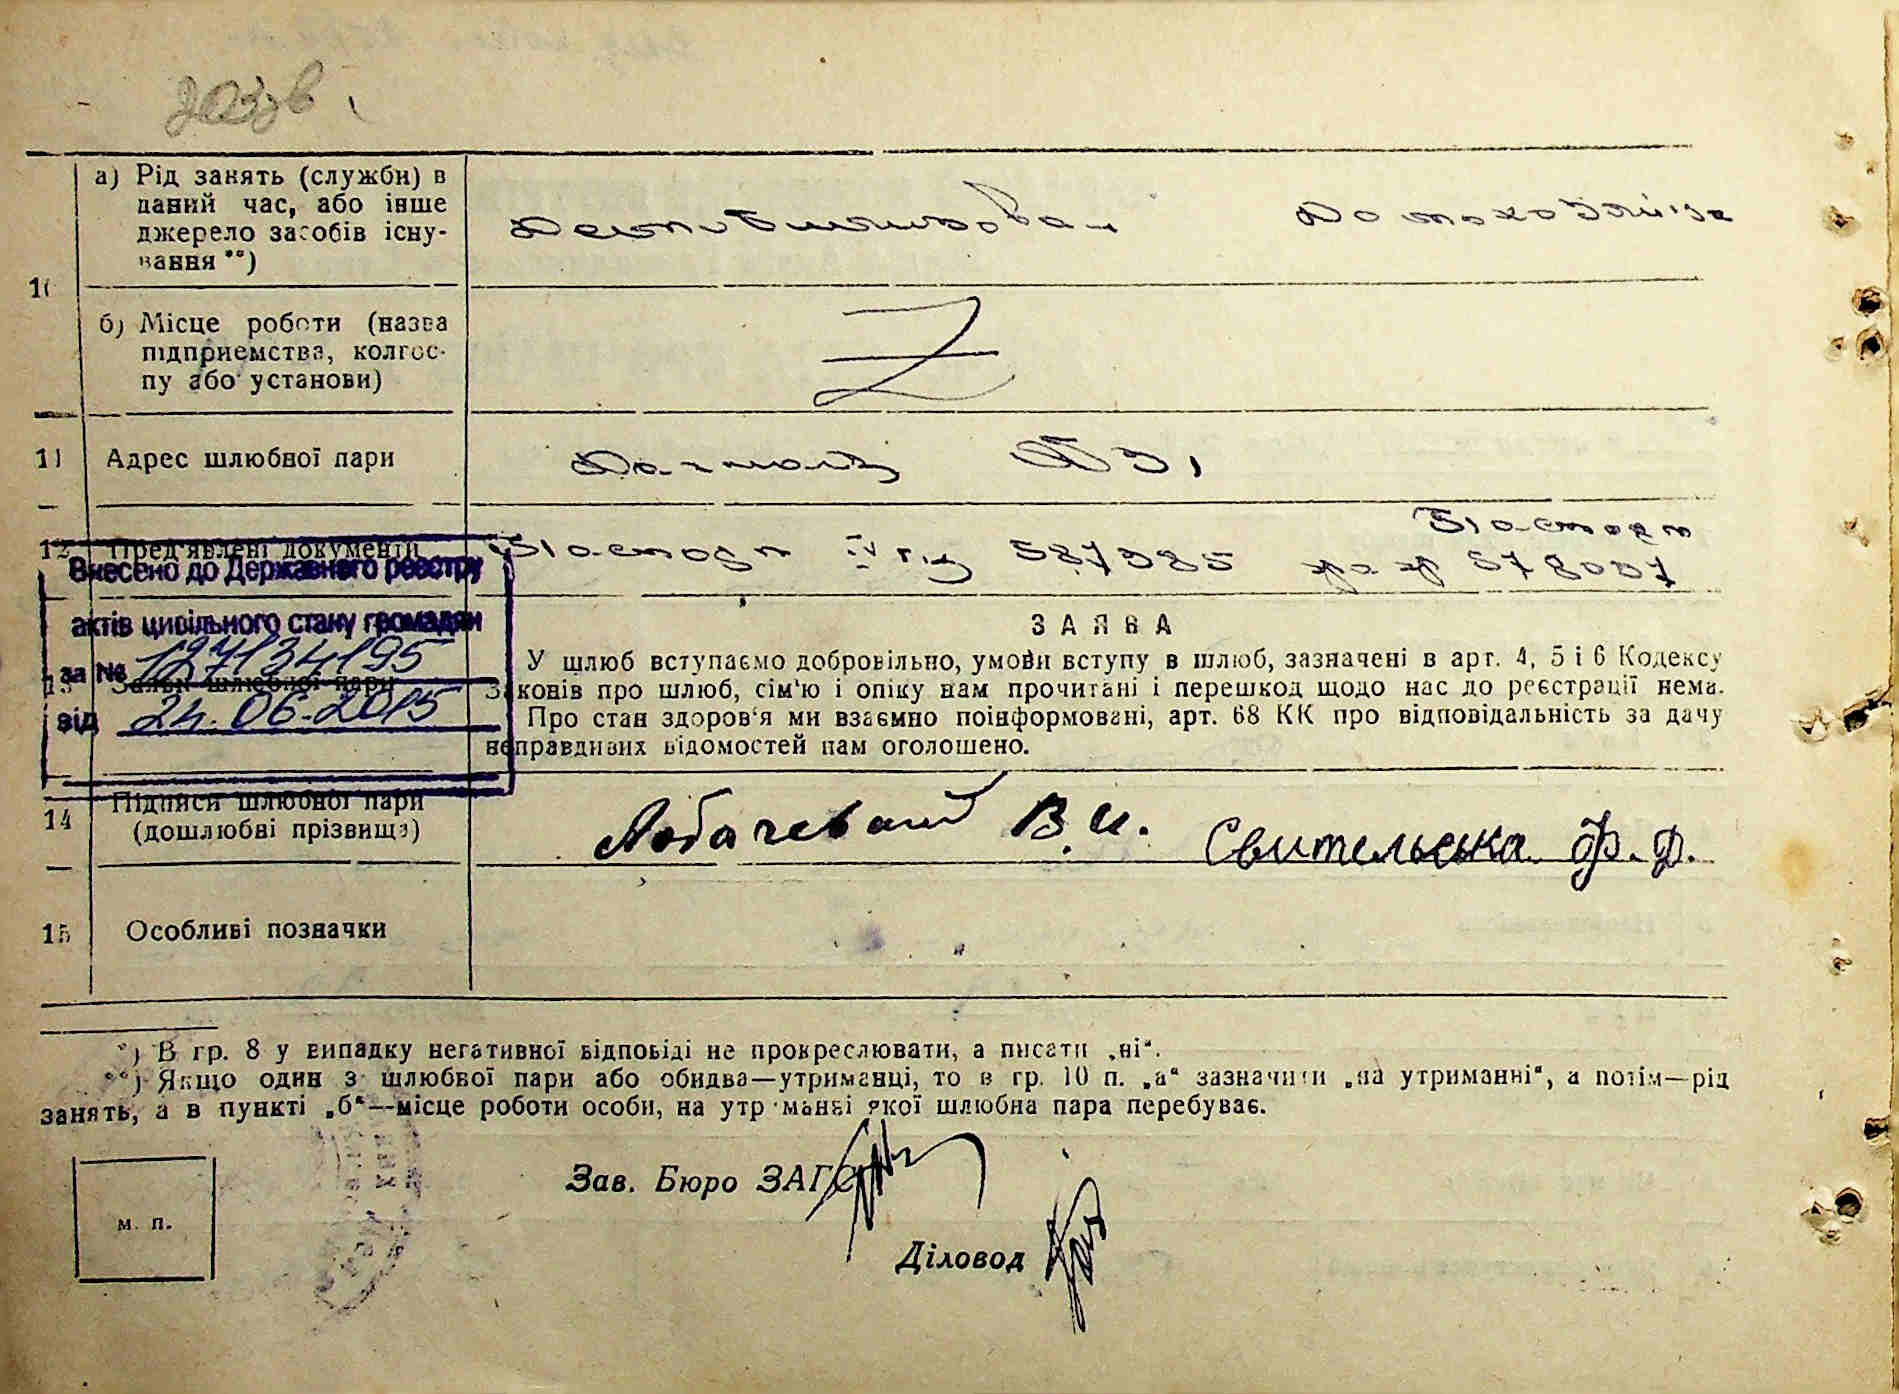 а) Рід занять (служби) в
даний час, або інше
джерело засобів існу-
вання **)
10
б) Місце роботи (назва
підприємства, колгос-
пу або установи)
11 Адрес шлюбної пари
Паспорт
12 Пред'явлені документи Паспорт 587385 578057
Внесено до Державного реєстру
актів цивільного стану громадян
за № 127134195
від 24.06.2015
ЗАЯВА
13 Заяви шлюбної пари У шлюб вступаємо добровільно, умови вступу в шлюб, зазначені в арт. 4, 5 і 6 Кодексу
Законів про шлюб, сім'ю і опіку нам прочитані і перешкод щодо нас до реєстрації нема.
Про стан здоров'я ми взаємно поінформовані, арт. 68 КК про відповідальність за дачу
неправдивих відомостей нам оголошено.
14 Підписи шлюбної пари
(дошлюбні прізвища) В.И. Свительська Ф.Д.
15 Особливі позначки
*) В гр. 8 у випадку негативної відповіді не прокреслювати, а писати „ні“.
**) Якщо один з шлюбної пари або обидва—утриманці, то в гр. 10 п. „а“ зазначити „на утриманні“, а потім—рід
занять, а в пункті „б“—місце роботи особи, на утриманні якої шлюбна пара перебуває.
Зав. Бюро ЗАГС
м. п.
Діловод